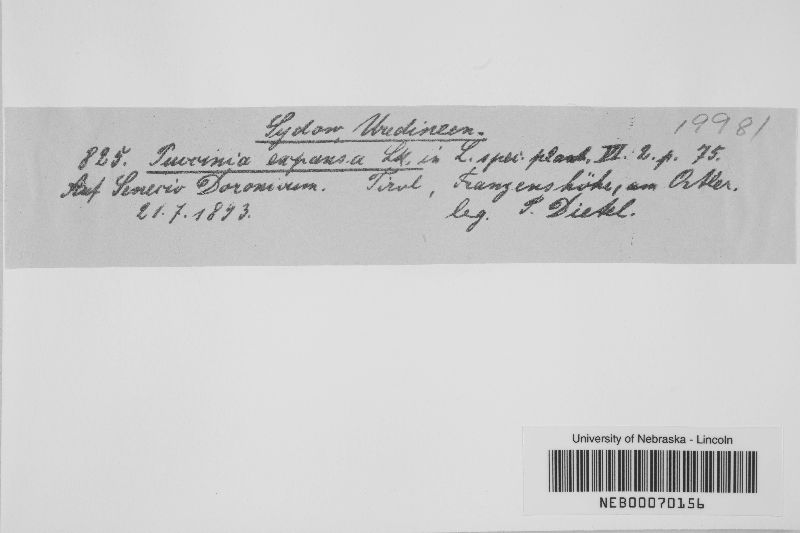 Sydow, Uredineen.
19981
825. Puccinia expansa Lk. in L. spei. plant. VI. 2. p. 75.
Auf Senecio Doronicum. Tirol, Franzenshöhe, am Ortler.
21.7.1893. leg. P. Dietel.
University of Nebraska - Lincoln
NEB00070156